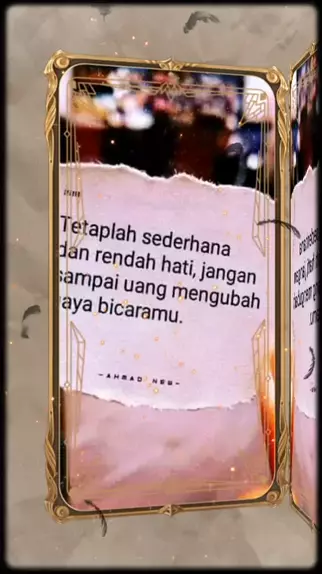 Tetaplah sederhana
dan rendah hati, jangan
sampai uang mengubah
gaya bicaramu.
-AHMAD NEW-